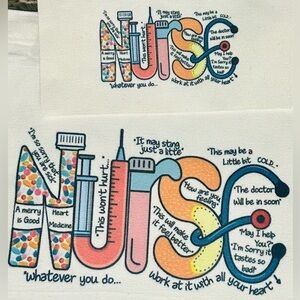 "It may sting
just a little"
"This may be a
Little bit COLD..."
NURSE
"This won't hurt..."
The doctor
will be in soon"
"Whatever you do...
Work at it with all your heart"
"I'm so sorry that
you are sick"
"It may sting
just a little"
"This may be a
Little bit COLD..."
NURSE
"This won't hurt...
"How are you
feeling?"
"The doctor
will be in soon"
A merry
is Good
Heart
Medicine
"This will make
it feel better"
"May I help
You?"
"I'm Sorry it
tastes so
bad!"
"Whatever you do...
Work at it with all your heart"